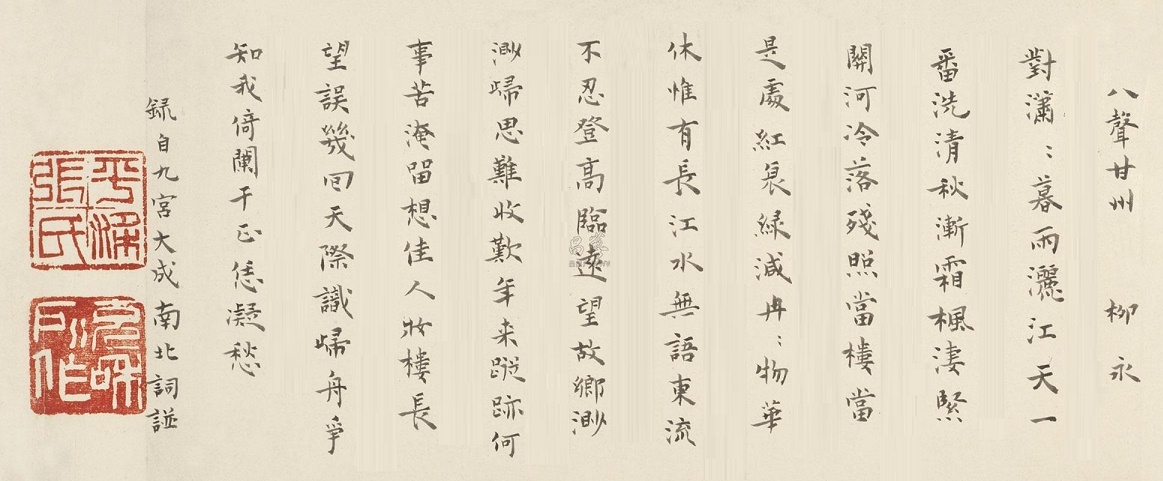 八聲甘州 柳永
對瀟〻暮雨灑江天一
番洗清秋漸霜楓淒緊
關河冷落殘照當樓當
是處紅衰綠減冉〻物華
休惟有長江水無語東流
不忍登高臨遠望故鄉渺
渺歸思難收歎年来蹤跡何
事苦淹留想佳人妝樓長
望誤幾回天際識歸舟爭
知我倚闌干正恁凝愁
錄自九宮大成南北詞譜
平湖張氏